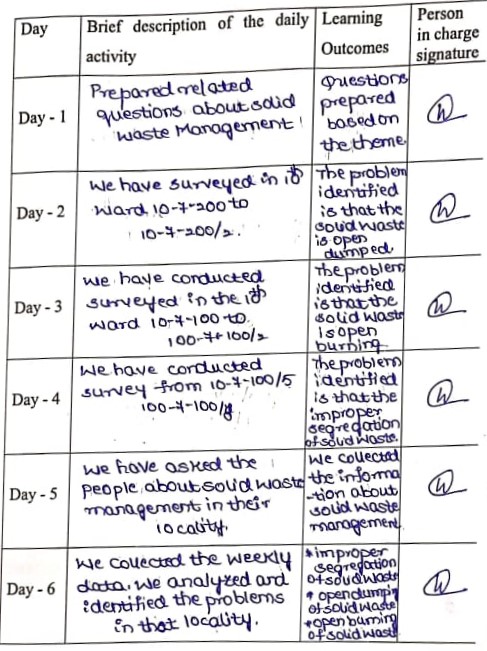 Day
Brief description of the daily
activity
Learning
Outcomes
Person
in charge
signature
Day - 1
Prepared related
questions about solid
waste Management
Questions
prepared
based on
the theme
Day - 2
We have surveyed in 10th
ward 10-7-200 to
10-7-200/2.
The problem
identified
is that the
solid waste
is open
dumped
Day - 3
We have conducted
surveyed in the 10th
ward 10-7-100 to
100-7-100/2
The problem
identified
is that the
solid waste
is open
burning
Day - 4
We have conducted
survey from 10-7-100/5
100-7-100/8
The problem
identified
is that the
improper
segregation
of solid waste
Day - 5
We have asked the
people, about solid waste
management in their
locality.
We collected
the informa
-tion about
solid waste
management
Day - 6
We collected the weekly
data. We analyzed and
identified the problems
in that locality.
*improper
segregation
of solid waste
* open dumpin
of solid waste
*open burning
of solid waste